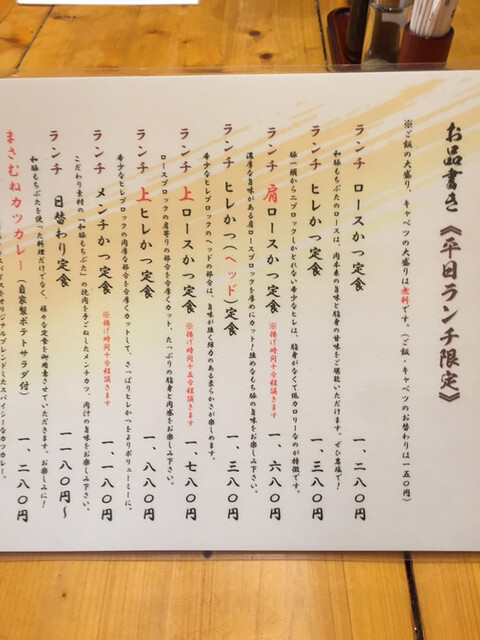 お品書き《平日ランチ限定》
※ご飯の大盛り、キャベツの大盛りは無料です。（ご飯・キャベツのお替わりは一五〇円）
ランチ ロースかつ定食 一、二八〇円
和豚もちぶたのロースは、肉本来の旨味と脂身の甘味をご堪能いただけます。ぜひ岩塩で！
ランチ ヒレかつ定食 一、三八〇円
豚一頭から二ブロックしかとれない希少なヒレは、脂身がなくて低カロリーなのが特徴です。
ランチ 肩ロースかつ定食 ※揚げ時間十分程頂きます 一、六八〇円
濃厚な旨味がある肩ロースブロックを厚めにカット！強めなもち豚の旨味をお楽しみ下さい。
ランチ ヒレかつ（ヘッド）定食 一、三八〇円
希少なヒレブロックのヘッドの部分は、旨味が強く弾力のある柔らかさが楽しめます。
ランチ 上ロースかつ定食 ※揚げ時間十五分程頂きます 一、七八〇円
ロースブロックの肩寄りの部分を分厚くカット、たっぷりの脂身と肉感をお楽しみ下さい。
ランチ 上ヒレかつ定食 一、八八〇円
希少なヒレブロックの肉厚な部分を分厚くカットして、さっぱりヒレかつをよりボリューミーに。
ランチ メンチかつ定食 ※揚げ時間十分程頂きます 一、一八〇円
こだわり素材の「和豚もちぶた」の挽肉を手ごねしたメンチカツ、肉汁の旨味をお楽しみ下さい。
ランチ 日替わり定食 一一八〇円〜
和豚もちぶたを使った料理だけでなく、様々な定食を御用意させていただきます。お楽しみに！
まさむねカツカレー（自家製ポテトサラダ付） 一、二八〇円
スパイスをオリジナルブレンドしたスパイシーなカツカレー。